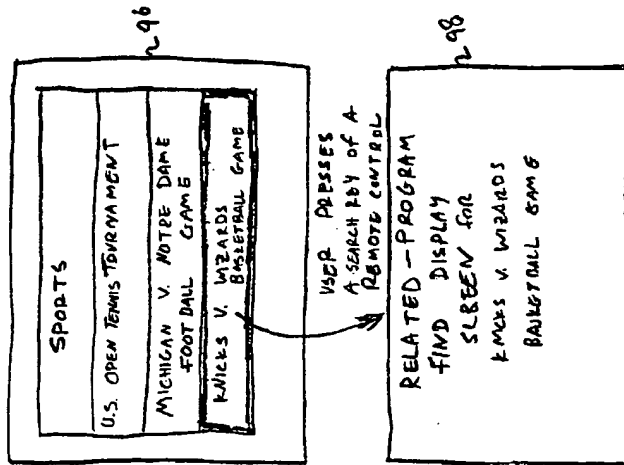 96
SPORTS
U.S. OPEN TENNIS TOURNAMENT
MICHIGAN V. NOTRE DAME
FOOTBALL GAME
KNICKS V. WIZARDS
BASKETBALL GAME
USER PRESSES
A SEARCH KEY OF A
REMOTE CONTROL
98
RELATED-PROGRAM
FIND DISPLAY
SCREEN FOR
KNICKS V. WIZARDS
BASKETBALL GAME